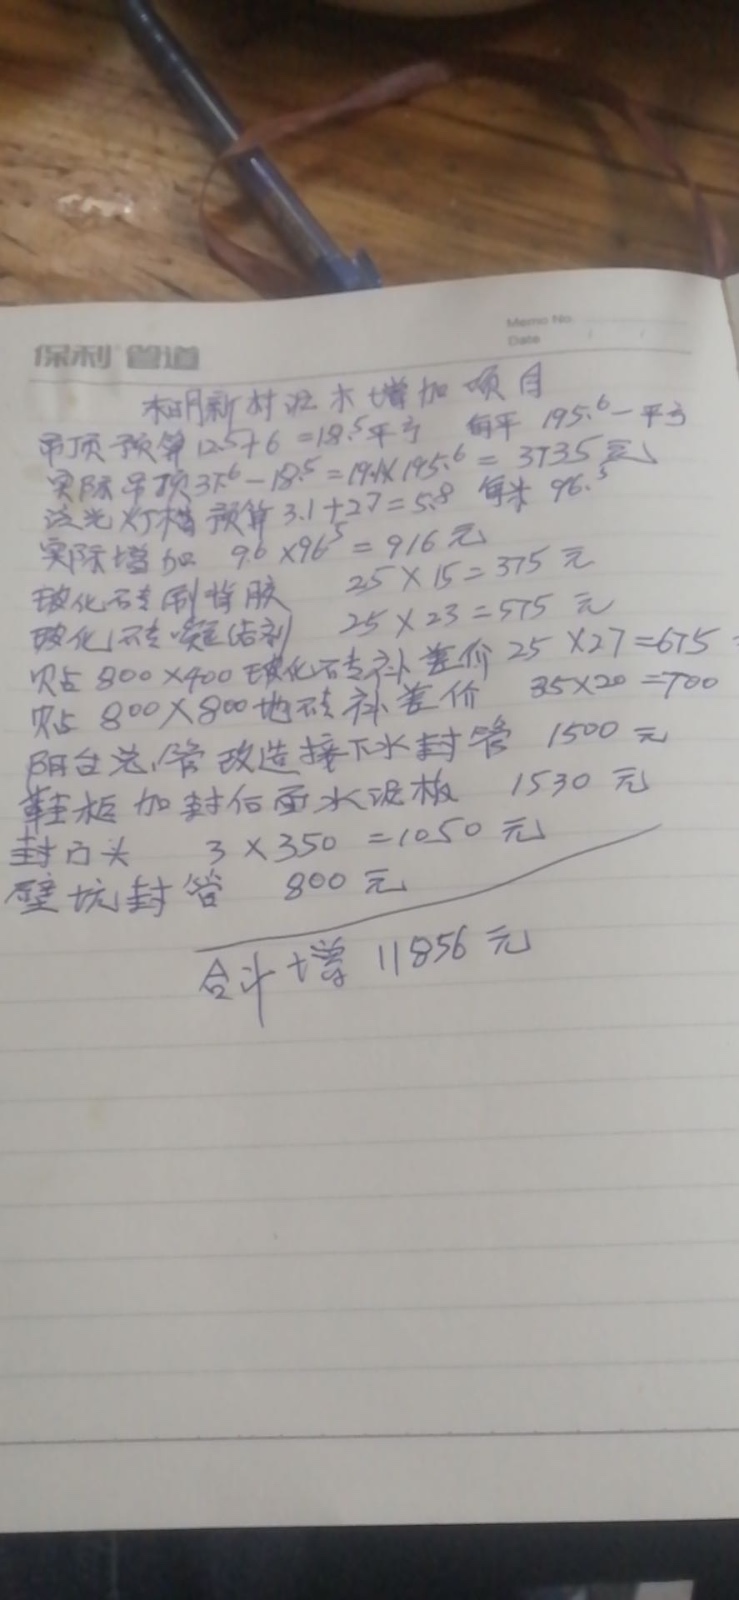 保利 管道
Memo No.
Date / /
新村泥木增加项目
吊顶预算12.5+6=18.5平方 每平 195.6一平方
实际吊顶37.6-18.5=19.1×195.6=3735元
泛光灯槽预算3.1+27=5.8 每米 96.5
实际增加 9.6×96.5=916元
玻化砖刷背胶 25×15=375元
玻化砖 结剂 25×23=575元
贴800×400玻化砖补差价 25×27=675
贴 800×800地砖补差价 35×20=700
阳台 管改造接下水封管 1500元
鞋柜加封后面水泥板 1530元
封门头 3×350=1050元
壁坑封管 800元
合计增 11856元